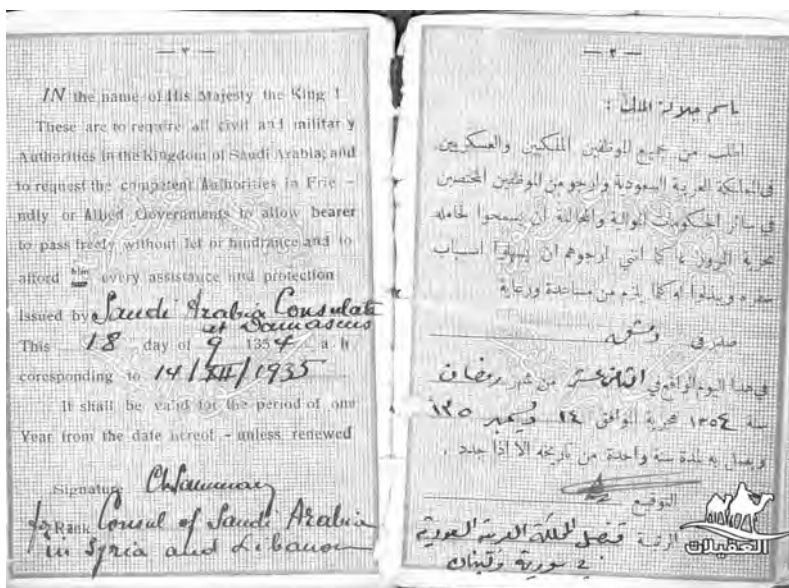 — ٣ —
IN the name of His Majesty the King !
These are to require all civil and militar y
Authorities in the Kingdom of Saudi Arabia; and
to request the competent Authorities in Frie -
ndly or Allied Governments to allow bearer
to pass freely without let or hindrance and to
afford him every assistance and protection
issued by Saudi Arabia Consulate
at Damascus
This 18 day of 9 1354 a h
coresponding to 14/XII/1935
It shall be valid for the period of one
Year from the date hereof - unless renewed
Signature
for Rank Consul of Saudi Arabia
in Syria and Lebanon
— ٢ —
باسم جلالة الملك :
اطلب من جميع الموظفين الملكيين والعسكريين
في المملكة العربية السعودية وارجو من الموظفين المختصين
في سائر الحكومات الموالية والمحالفة ان يسمحوا لحامله
بحرية المرور كما انني ارجوهم ان يسهلوا اسباب
سفره ويبذلوا له كل ما يلزم من مساعدة ورعاية
صدر في دمشق
في هذا اليوم الواقع في من شهر رمضان
سنة ١٣٥٤ هجرية الموافق ١٤ ديسمبر ٩٣٥
ويعمل به لمدة سنة واحدة من تاريخه الا اذا جدد .
التوقيع
الرتبة قنصل المملكة العربية السعودية
في سورية ولبنان
العقيلات